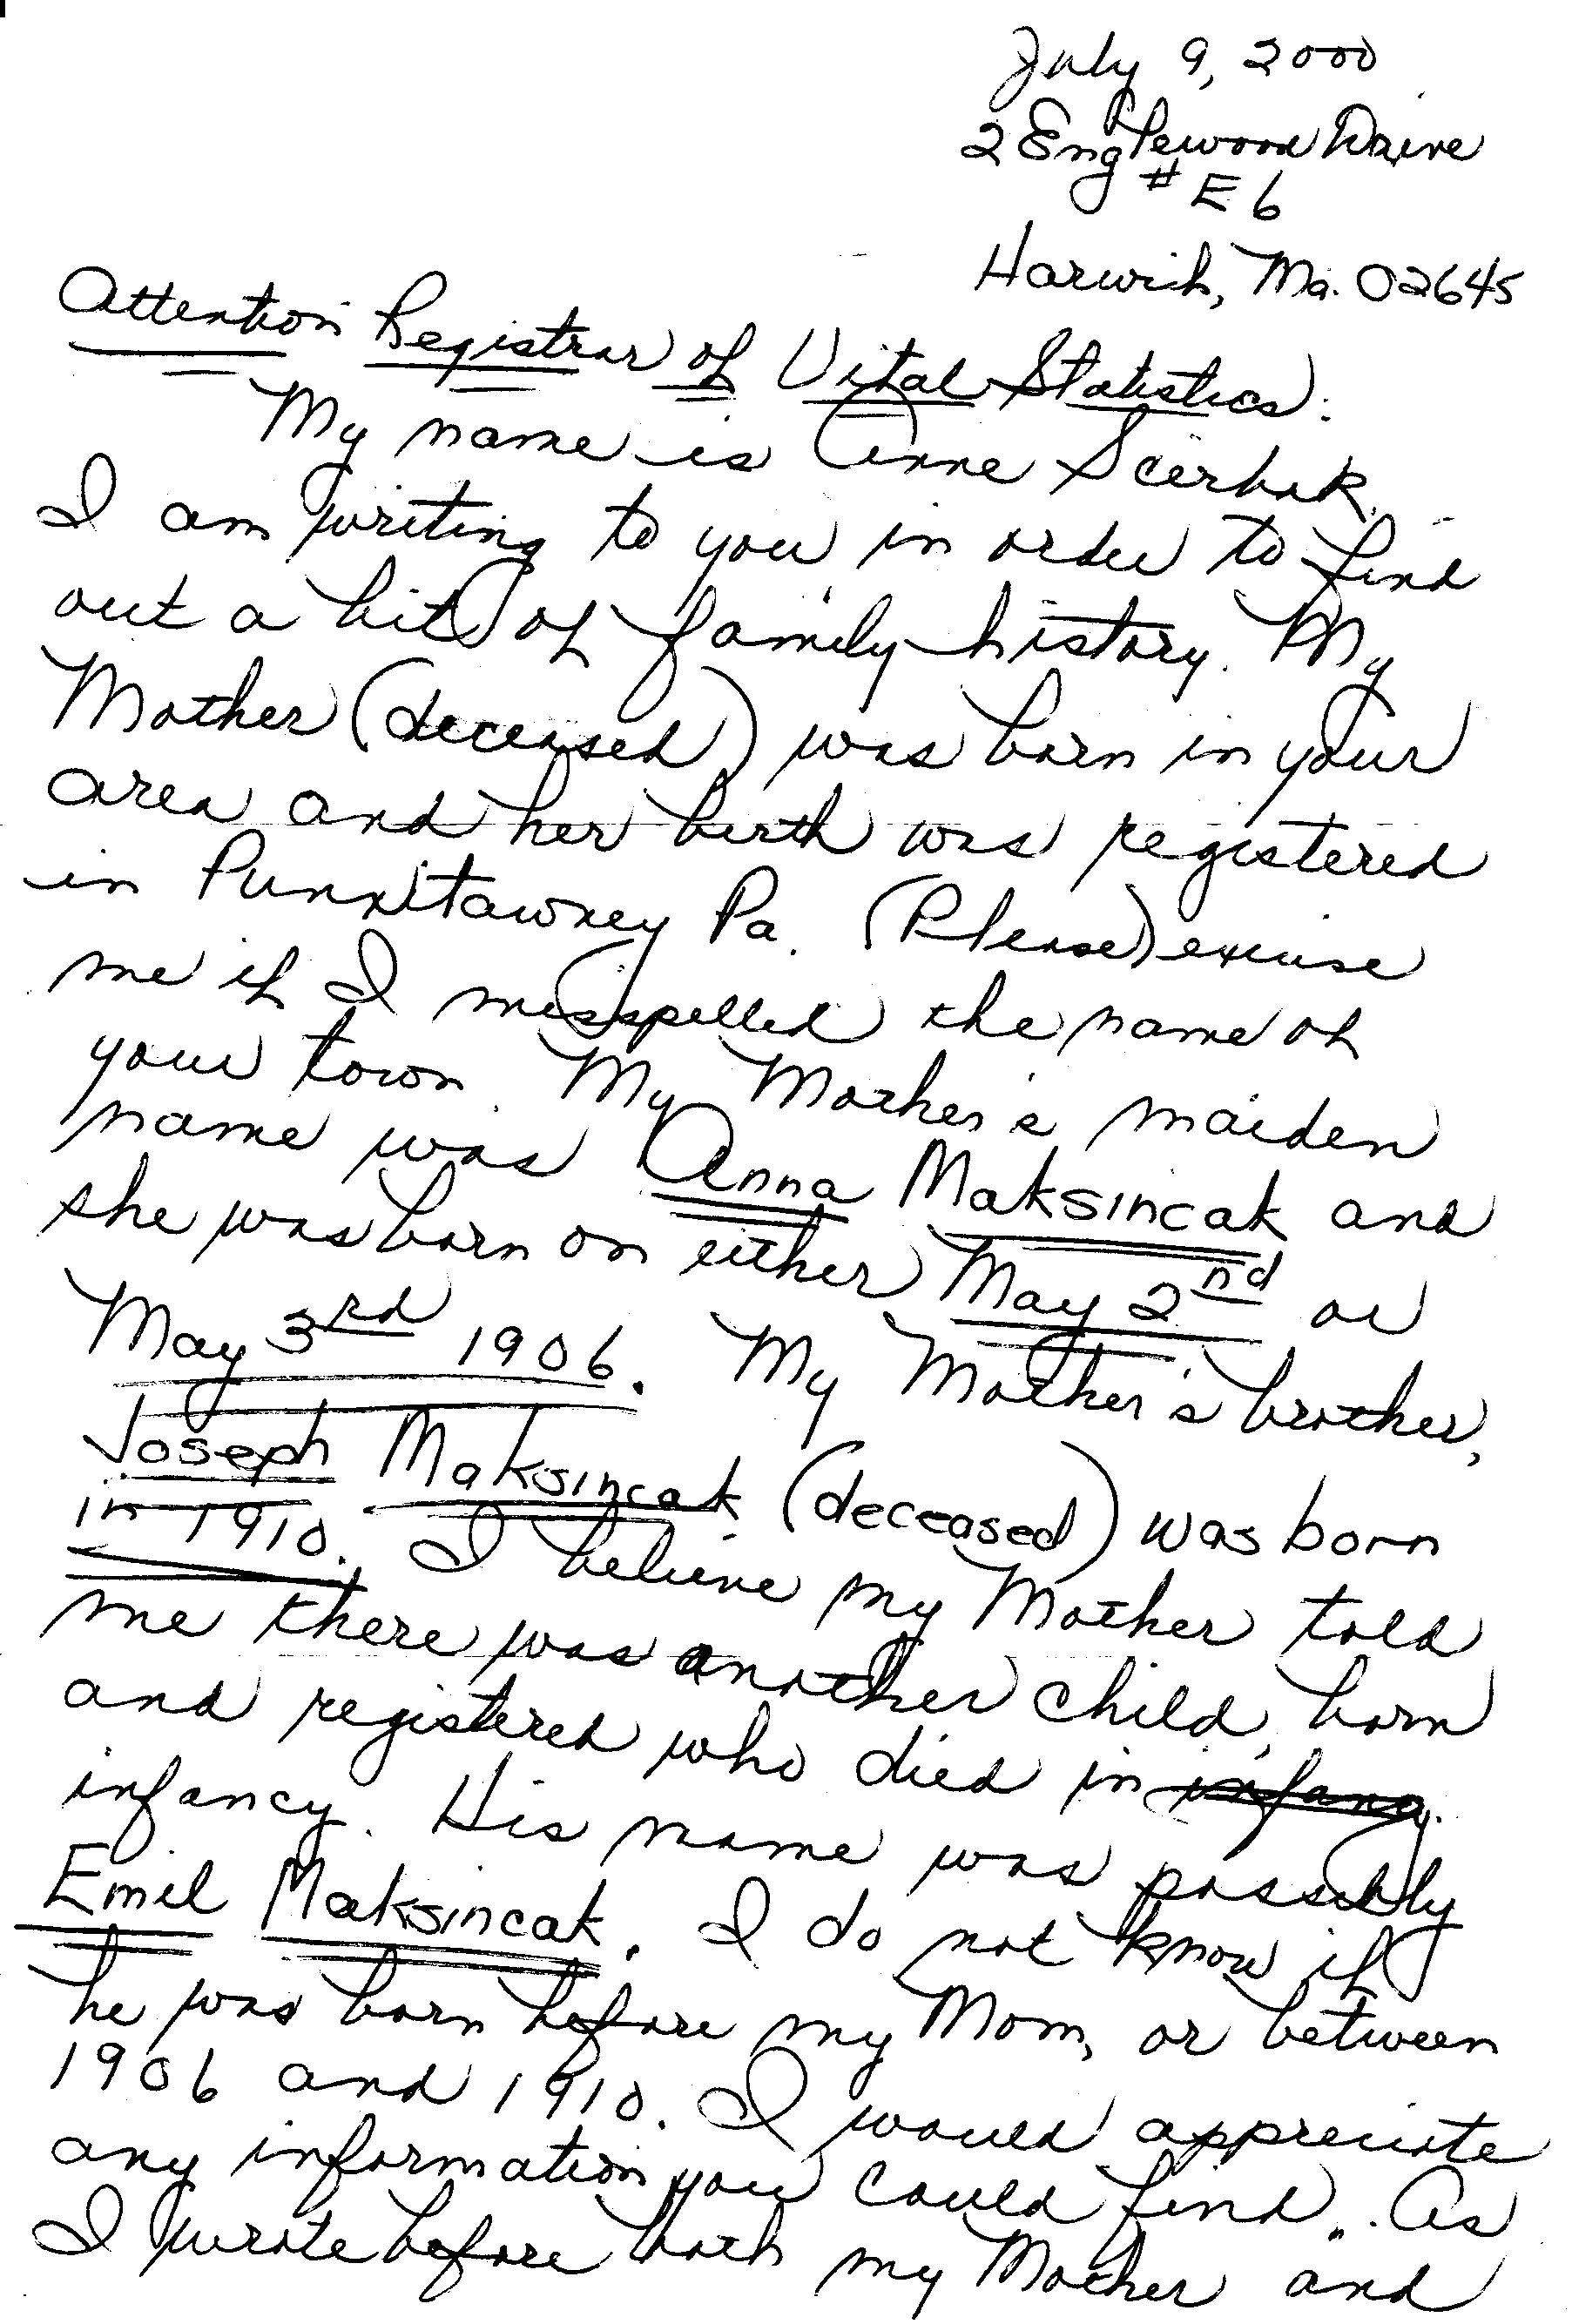 July 9, 2000
2 Englewood Drive
# E6
Harwich, Ma. 02645
Attention Registrar of Vital Statistics:
My name is Anne Scerbak.
I am writing to you in order to find
out a bit of family history. My
Mother (deceased) was born in your
area and her birth was registered
in Punxitawney Pa. (Please) excuse
me if I misspelled the name of
your town. My Mother's maiden
name was Anna Maksincak and
she was born on either May 2nd or
May 3rd 1906. My Mother's brother,
Joseph Maksincak (deceased) was born
in 1910. I believe my Mother told
me there was another child, born
and registered who died in infancy.
infancy. His name was possibly
Emil Maksincak. I do not know if
he was born before my Mom, or between
1906 and 1910. I would appreciate
any information you could find. As
I wrote before both my Mother and